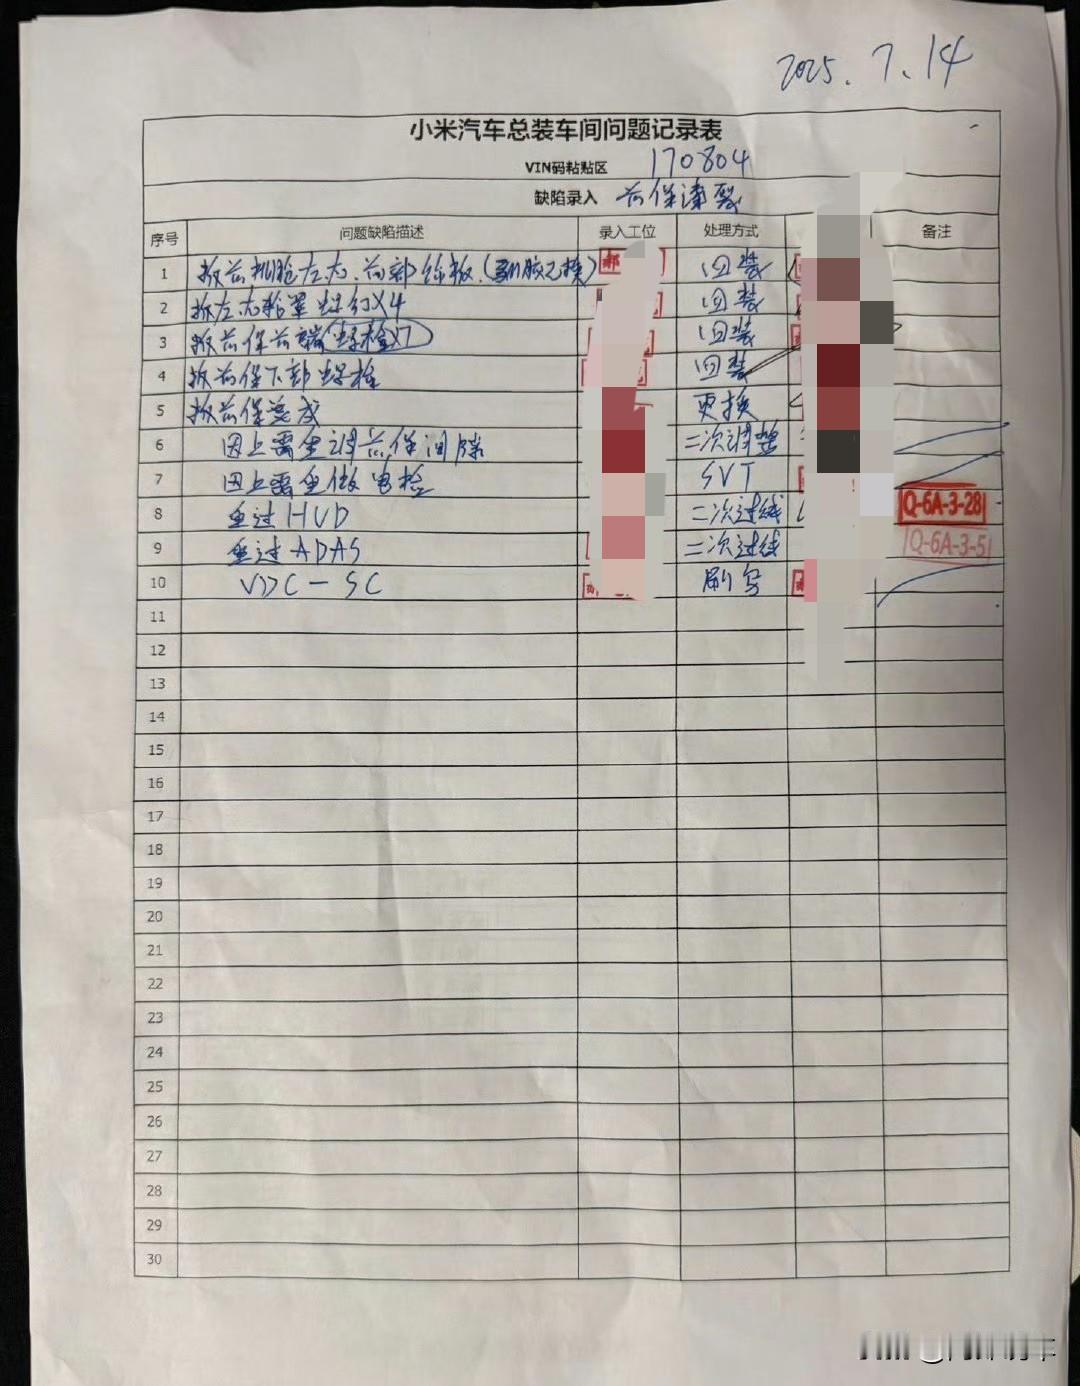 2025.7.14
小米汽车总装车间问题记录表
VIN码粘贴区 170804
缺陷录入 前保漆裂
序号 问题缺陷描述 录入工位 处理方式 备注
1 拆前机舱左右.前部饰板.(换) 郝 回装
2 拆左右轮罩螺钉X4 回装
3 拆前保前端螺栓X7 回装
4 拆前保下部螺栓 回装
5 拆前保总成 更换
6 因上需重调前保间隙 二次调整
7 因上需重做电检 SVT
8 重过HUD 二次过线 Q-6A-3-28
9 重过ADAS 二次过线 Q-6A-3-5
10 VDC-SC 刷写
11
12
13
14
15
16
17
18
19
20
21
22
23
24
25
26
27
28
29
30